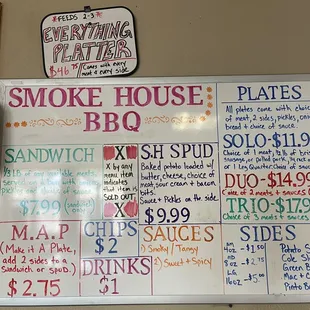 *FEEDS 2-3*
EVERYTHING
PLATTER
$46.75 Comes with every
meat & every side
SMOKE HOUSE
BBQ
SANDWICH
1/3 LB of any available meats
$7.99 (sandwich only)
X
X by any
menu item
indicates
that item is
SOLD OUT
X
S.H SPUD
Baked potato loaded w/
butter, cheese, choice of
meat, sour cream + bacon
bits.
Pickles + Sauce on the side.
$9.99
PLATES
All plates come with choice
of meat, 2 sides, pickles, onion
bread + choice of sauce.
SOLO-$11.9
Choice of meat, 1/3 lb of brisket
sausage, or pulled pork
or 1 Leg Quarter
DUO-$14.9
Choice of 2 meats + sauces
TRIO-$17.9
Choice of 3 meats + sauces
M.A.P
(Make it A Plate,
add 2 sides to a
Sandwich or spud.)
$2.75
CHIPS
$2
DRINKS
$1
SAUCES
1) Smoky / Tangy
2) Sweet + Spicy
SIDES
4oz -$1.50
8oz -$2.75
16oz-$5.00
Potato S
Cole Sl
Green B
Mac + C
Pinto B